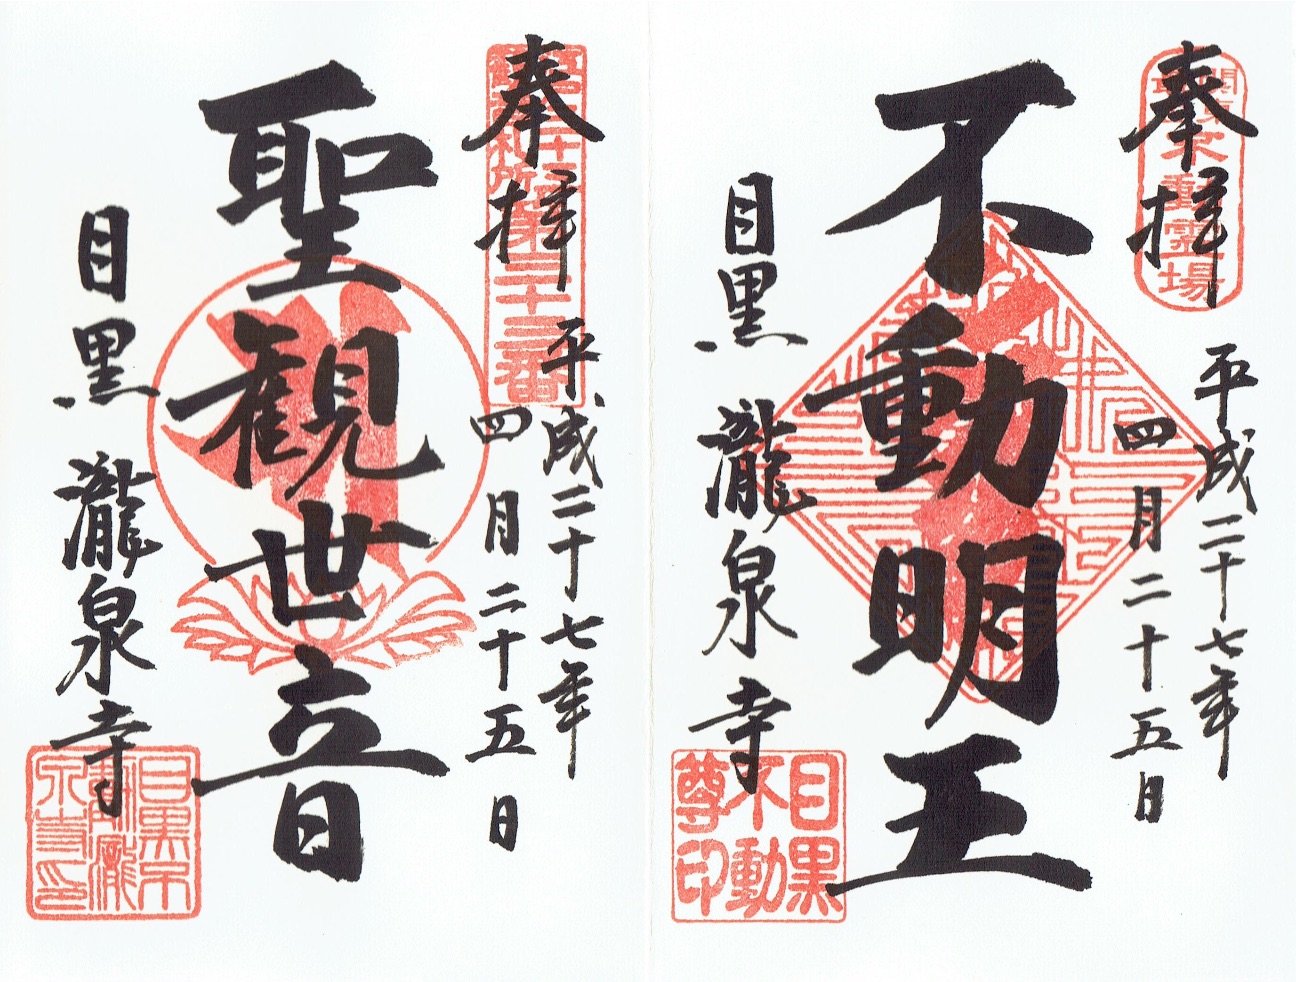 奉拝
平成二十七年
四月二十五日
不動明王
目黒 瀧泉寺
不動霊場
目黒
不動
尊印
奉拝
平成二十七年
四月二十五日
聖観世音
目黒 瀧泉寺
第三十三番
目黒不
動瀧
泉寺印